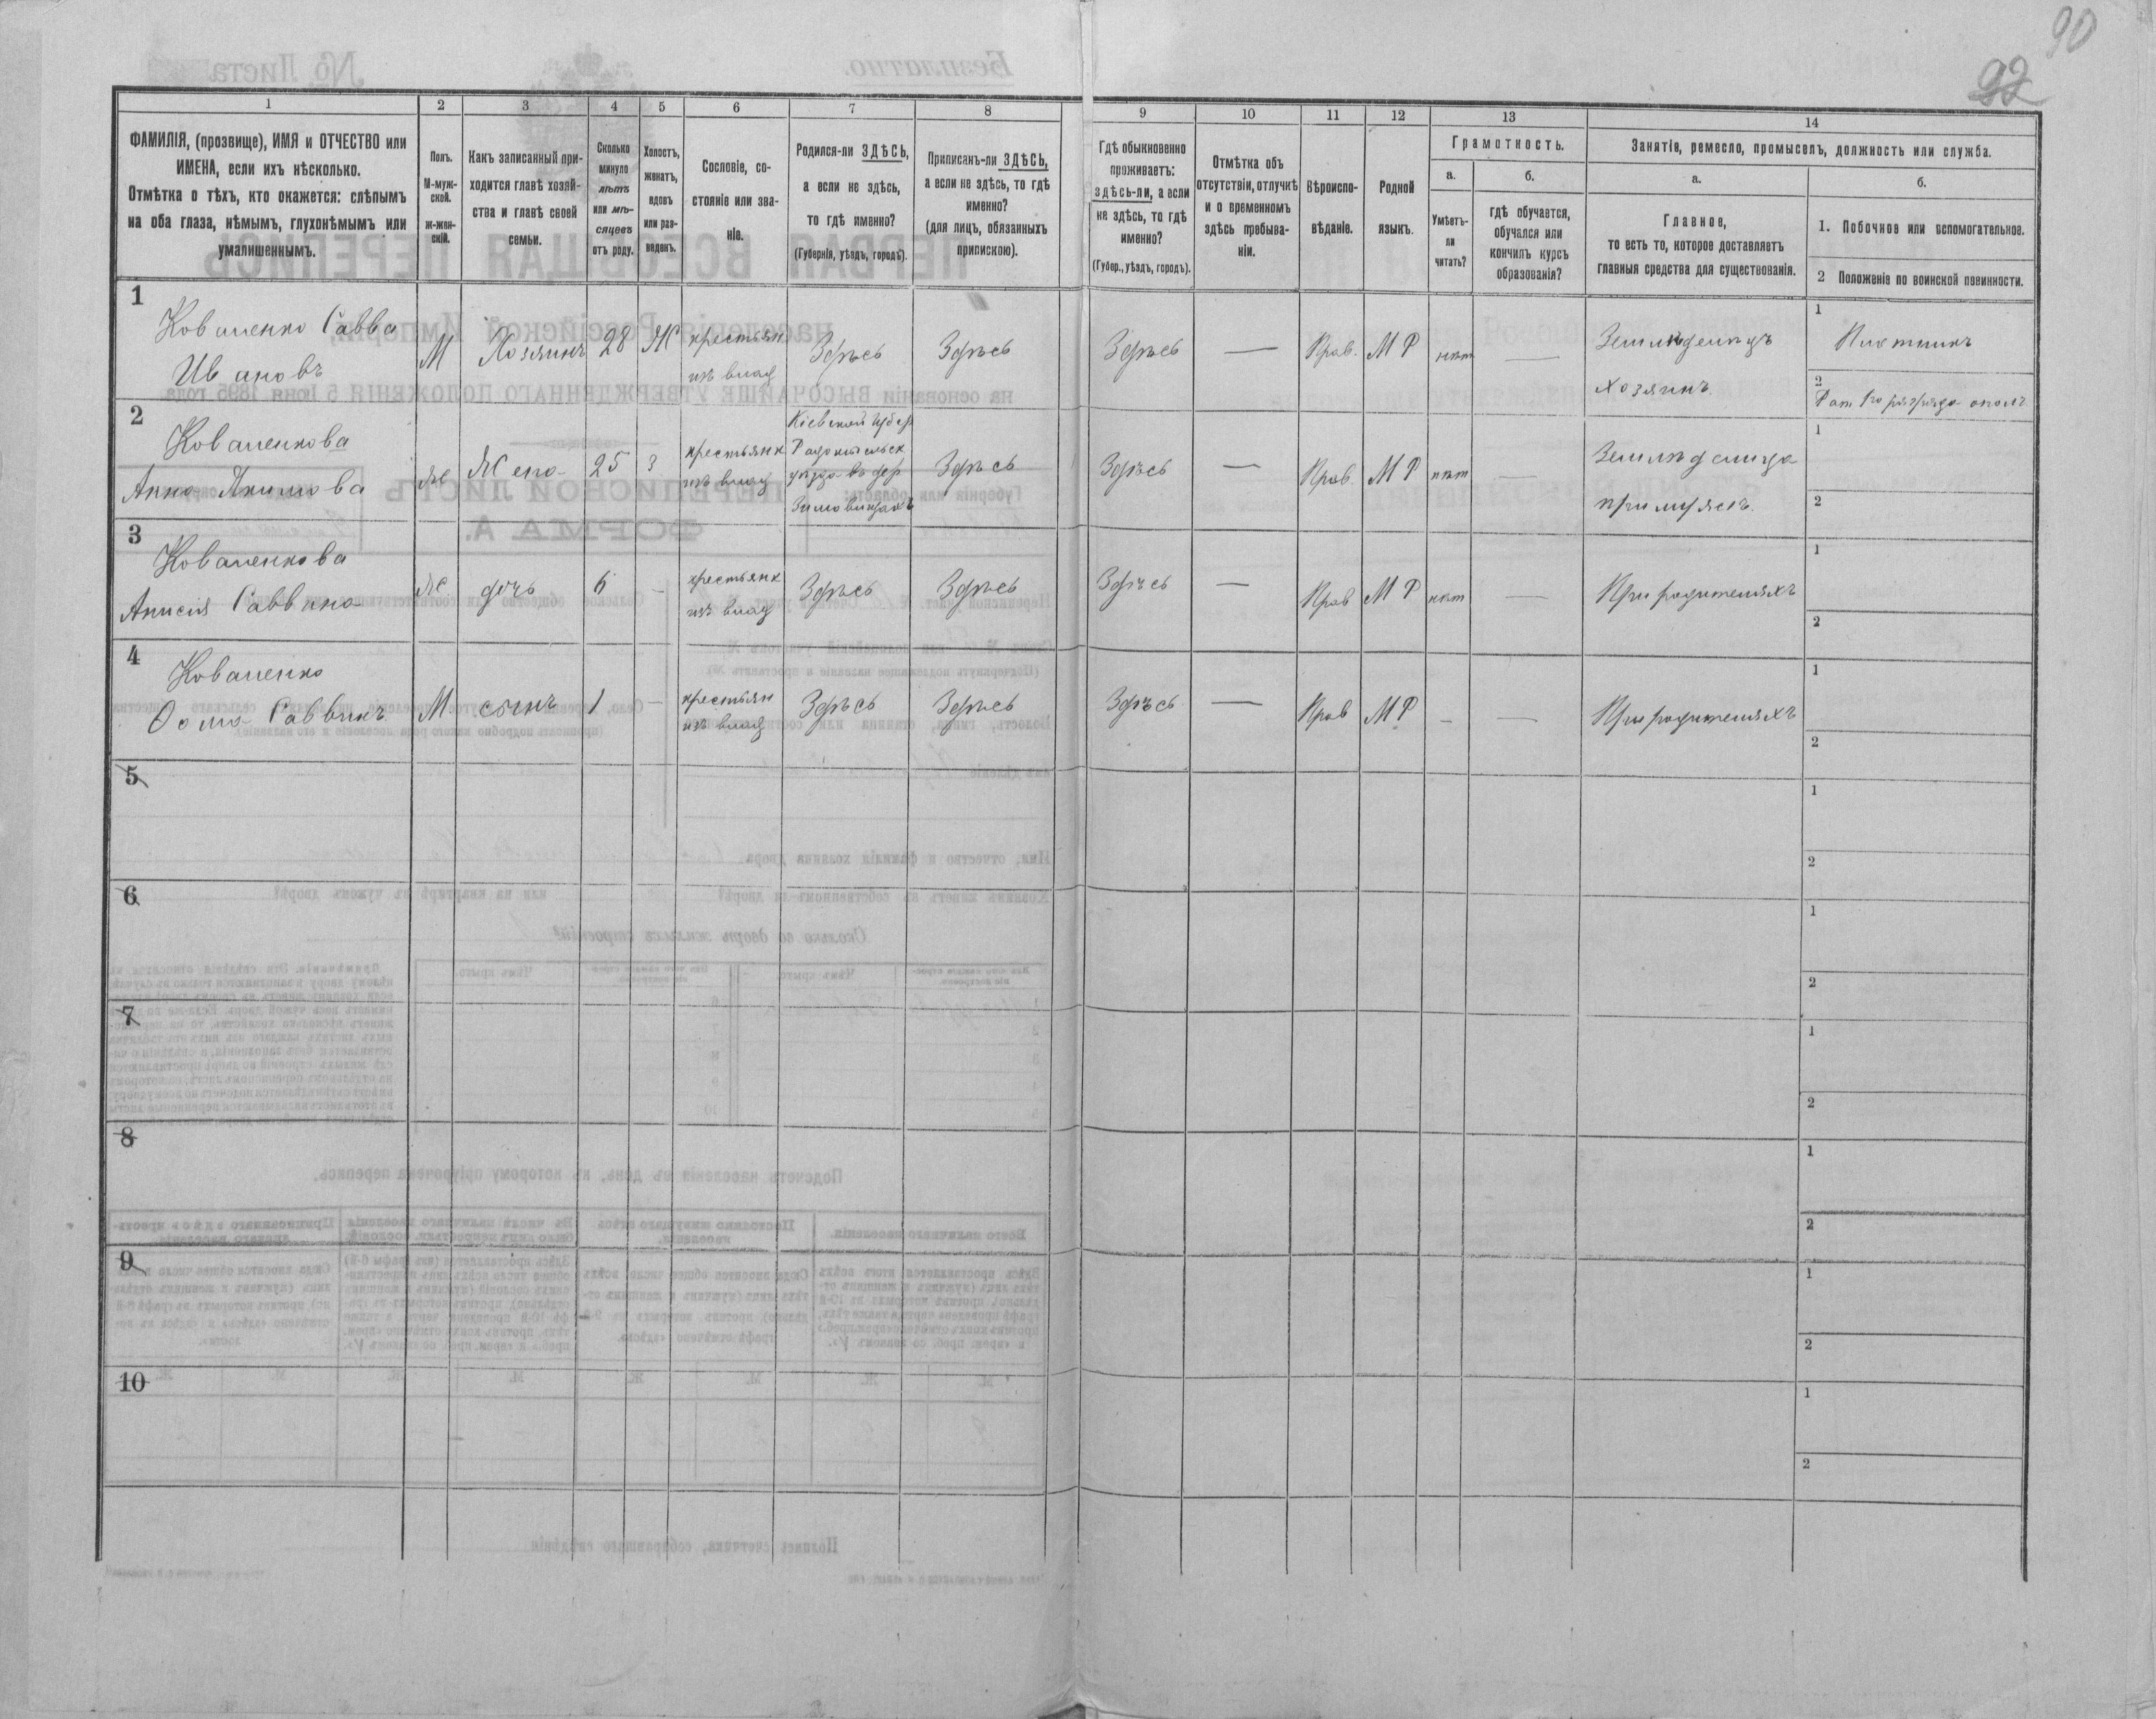 90
92
1
2
3
4
5
6
7
8
9
10
11
12
13
14
ФАМИЛІЯ, (прозвище), ИМЯ и ОТЧЕСТВО или
ИМЕНА, если ихъ нѣсколько.
Отмѣтка о тѣхъ, кто окажется: слѣпымъ
на оба глаза, нѣмымъ, глухонѣмымъ или
умалишеннымъ.
Полъ.
М-муж-
ской.
ж-жен-
скій.
Какъ записанный при-
ходится главѣ хозяй-
ства и главѣ своей
семьи.
Сколько
минуло
лѣтъ
или мѣ-
сяцевъ
отъ роду.
Холостъ,
женатъ,
вдовъ
или раз-
веденъ.
Сословіе, со-
стояніе или зва-
ніе.
Родился-ли ЗДѢСЬ,
а если не здѣсь,
то гдѣ именно?
(Губернія, уѣздъ, городъ).
Приписанъ-ли ЗДѢСЬ,
а если не здѣсь, то гдѣ
именно?
(для лицъ, обязанныхъ
припискою).
Гдѣ обыкновенно
проживаетъ:
здѣсь-ли, а если
не здѣсь, то гдѣ
именно?
(Губер., уѣздъ, городъ).
Отмѣтка объ
отсутствіи, отлучкѣ
и о временномъ
здѣсь пребыва-
ніи.
Вѣроиспо-
вѣданіе.
Родной
языкъ.
Грамотность.
а.
Умѣетъ-
ли
читать?
б.
гдѣ обучается,
обучался или
кончилъ курсъ
образованія?
Занятіе, ремесло, промыселъ, должность или служба.
а.
Главное,
то есть то, которое доставляетъ
главныя средства для существованія.
б.
1. Побочное или вспомогательное.
2 Положеніе по воинской повинности.
1
Коваленко Савва
Ивановъ
М
Хозяинъ
28
Ж
крестьян
изъ влад
Здѣсь
Здѣсь
Здѣсь
—
Прав.
М Р
нѣт
—
Земледѣлецъ
хозяинъ
1
Плотникъ
2
Рат 1го разряда опол
2
Коваленкова
Анна Якимова
Ж
Жена
25
З
крестьянк
изъ влад
Кіевской губер
Радомысльск
уѣзда въ дер
Здѣсь
Здѣсь
—
Прав.
М Р
нѣт
—
Земледѣлица
при мужѣ
1
2
3
Коваленкова
Анисія Саввина
Ж
дочь
6
—
крестьянк
изъ влад
Здѣсь
Здѣсь
Здѣсь
—
Прав
М Р
нѣт
—
При родителяхъ
1
2
4
Коваленко
Ѳома Саввинъ
М
сынъ
1
—
крестьян
изъ влад
Здѣсь
Здѣсь
Здѣсь
—
Прав
М Р
—
—
При родителяхъ
1
2
5
1
2
6
1
2
7
1
2
8
1
2
9
1
2
10
1
2